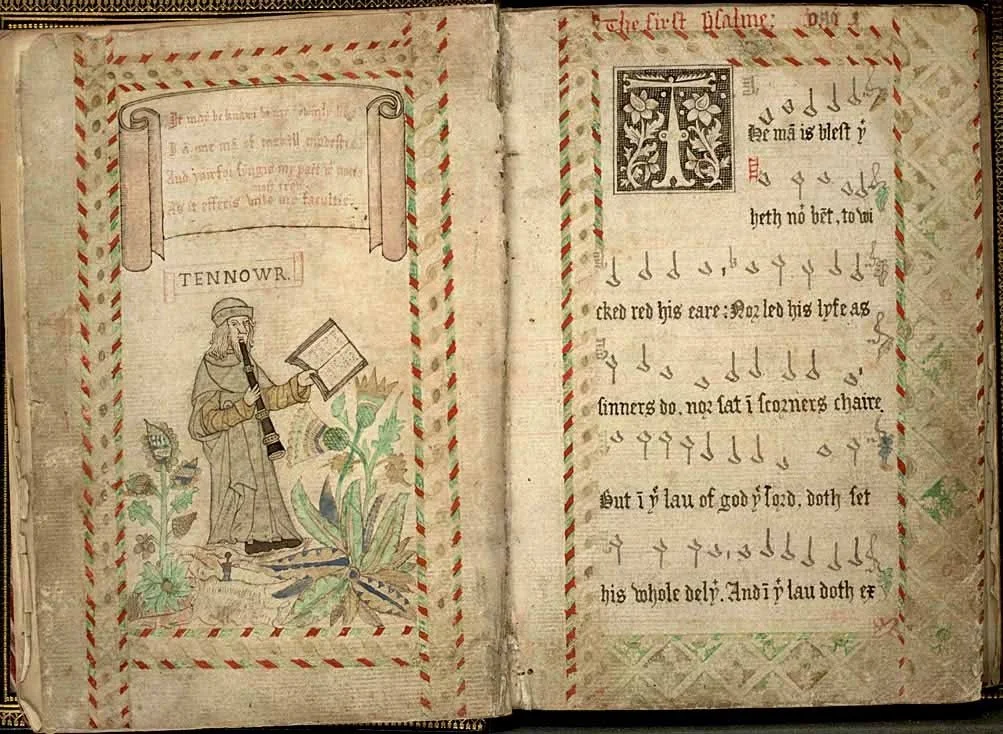 It may be knawin be my hew
I ā ane mā of mekill modestie
And yairfoir syngis my pairt wͭ notis
most trew.
As it efferis vnto my facultie.
TENNOWR.
The first psalme:
THe mā is blest yͭ
heth noͭ bēt, to wi
cked red his eare: Nor led his lyfe as
sinners do. nor sat ī scorners chaire.
But ī yͤ lau of god yͤ lord. doth set
his whole delyͭ. And ī yͭ lau doth ex